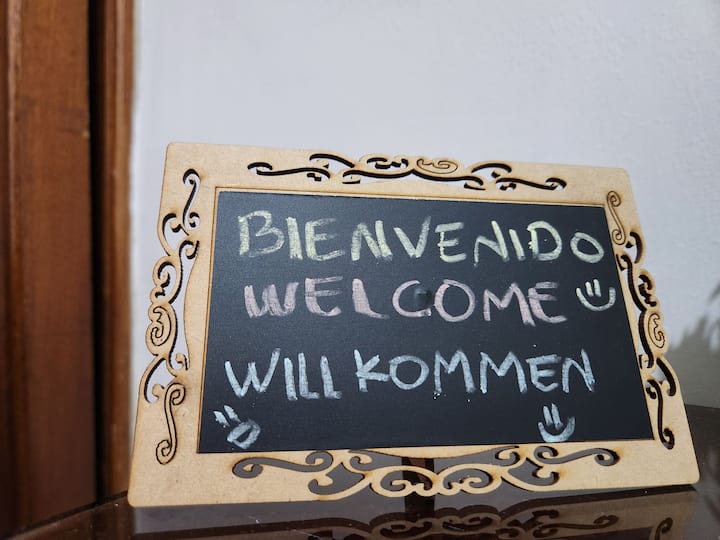 BIENVENIDO
WELCOME
WILLKOMMEN